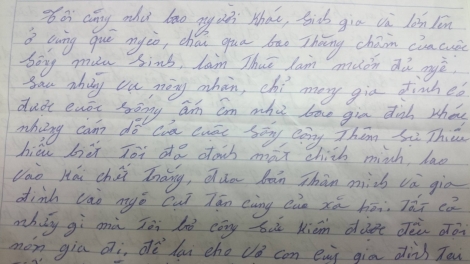 Tôi cũng như bao người khác, sinh gia và lớn lên
ở vùng quê nghèo, chải qua bao thăng chầm của cuộc
sống mưu sinh, làm thuê làm mướn đủ nghề.
sau những vụ nông nhàn, chỉ mong gia đình có
được cuộc sống ấm êm như bao gia đình khác
nhưng cám dỗ của cuộc sống cộng thêm sự thiếu
hiểu biết tôi đã đánh mất chính mình, lao
vào cái chết trắng, đưa bản thân mình và gia
đình vào ngõ cụt tận cùng của xã hội. tất cả
những gì mà tôi bỏ công sức kiếm được đều đội
nón gia đi, để lại cho vợ con cùng gia đình tôi